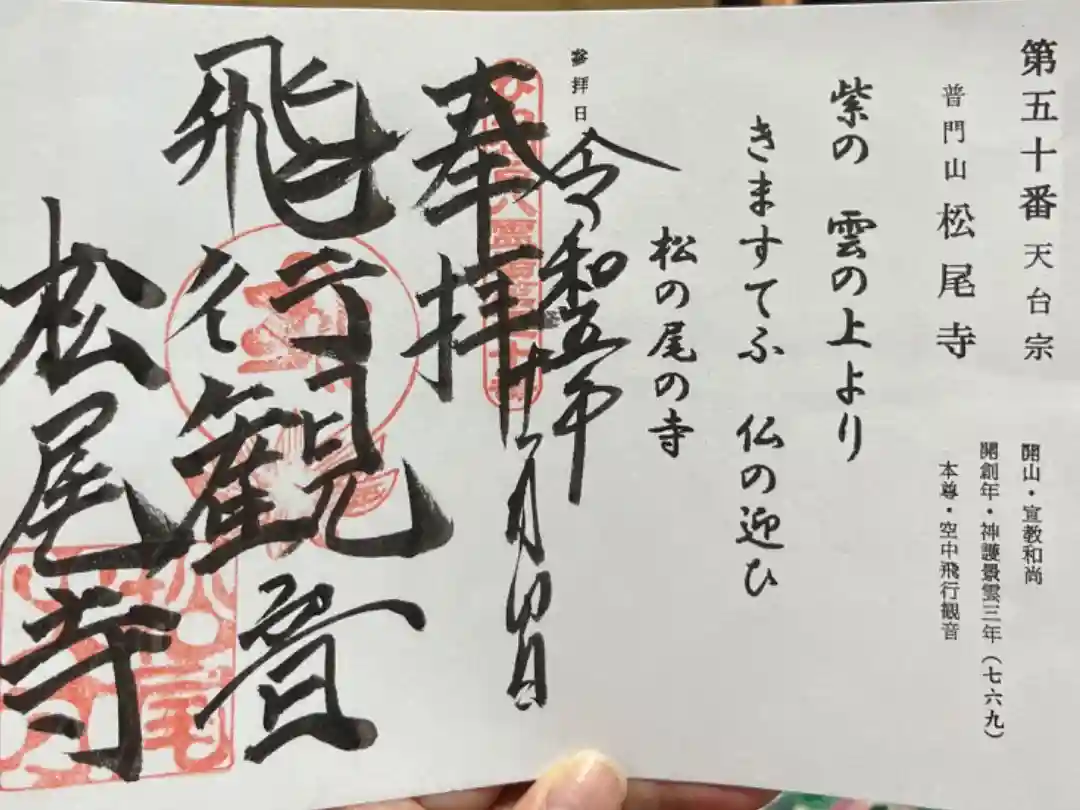 第五十番 天台宗
開山・宣教和尚
開創年・神護景雲三年（七六九）
普門山 松尾寺
本尊・空中飛行観音
紫の 雲の上より
きますてふ 仏の迎ひ
松の尾の寺
参拝日
令和五年
十一月四日
奉拝
飛行観音
松尾寺